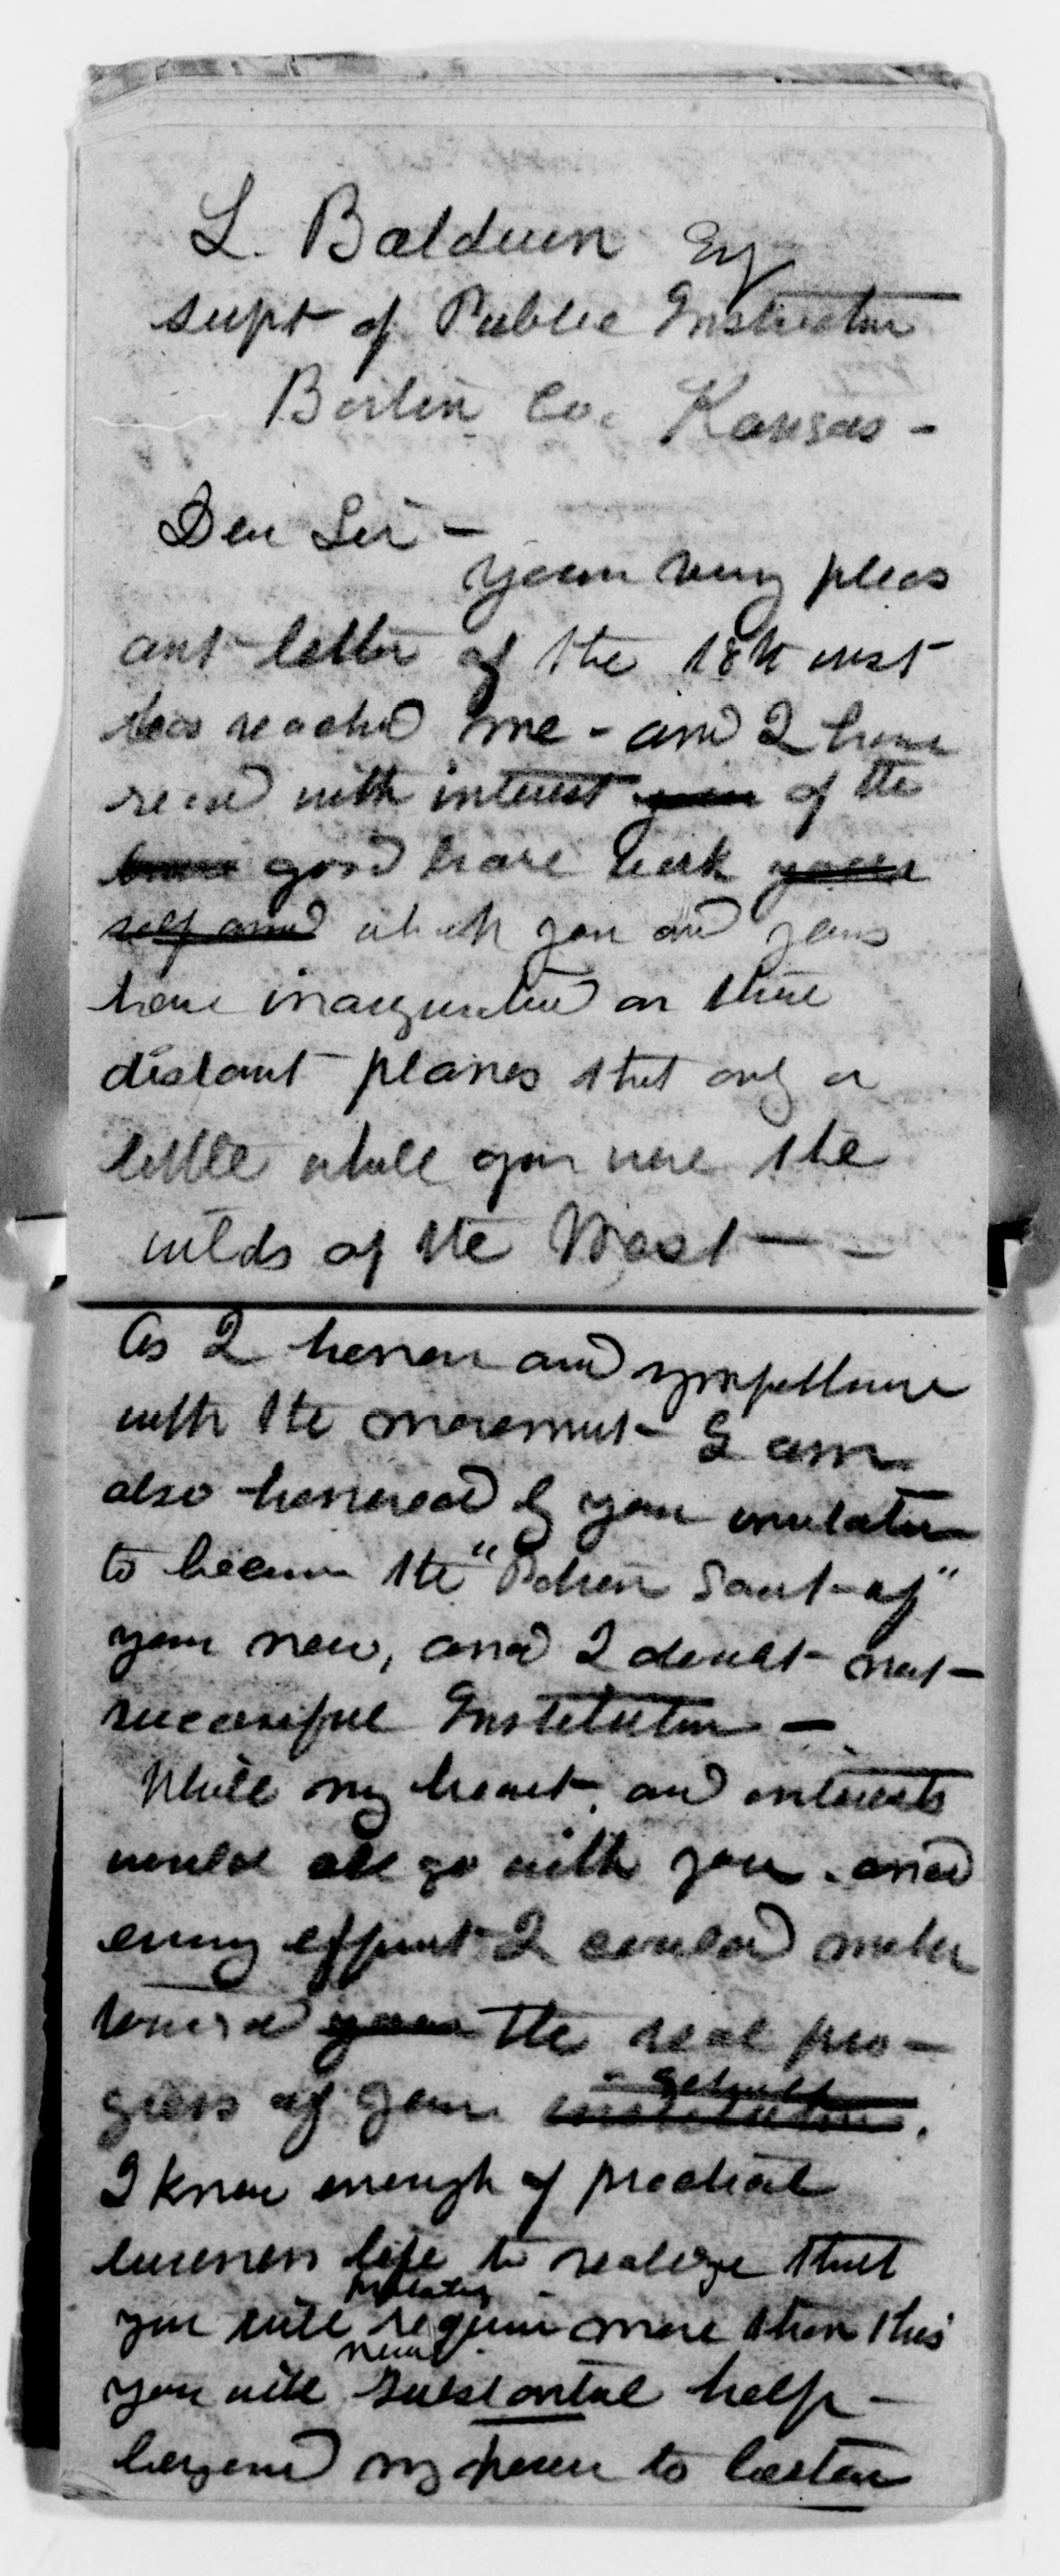 L. Baldwin Esq
supt of Public Instruction
Bartin Co. Kansas -
Dear Sir -
Your very pleas
ant letter of the 18th inst
has reached me - and I have
read with interest your of the
brave good brave work your
self and which you and yours
have inaugurated on those
distant planes that only a
little while ago were the
wilds of the West - -
As I honor and sympathise
with the movement - I am
also honored by your invitation
to become the "Patron Saint of"
your new, and I doubt not -
successful Institution -
While my heart, and interests
would all go with you, and
every effort I could make
toward your the real pro -
gress of your institution.
school
I know enough of practical
business life to realize that
probably
you will require more than this
need
you will substantal help -
beyond my power to bestow